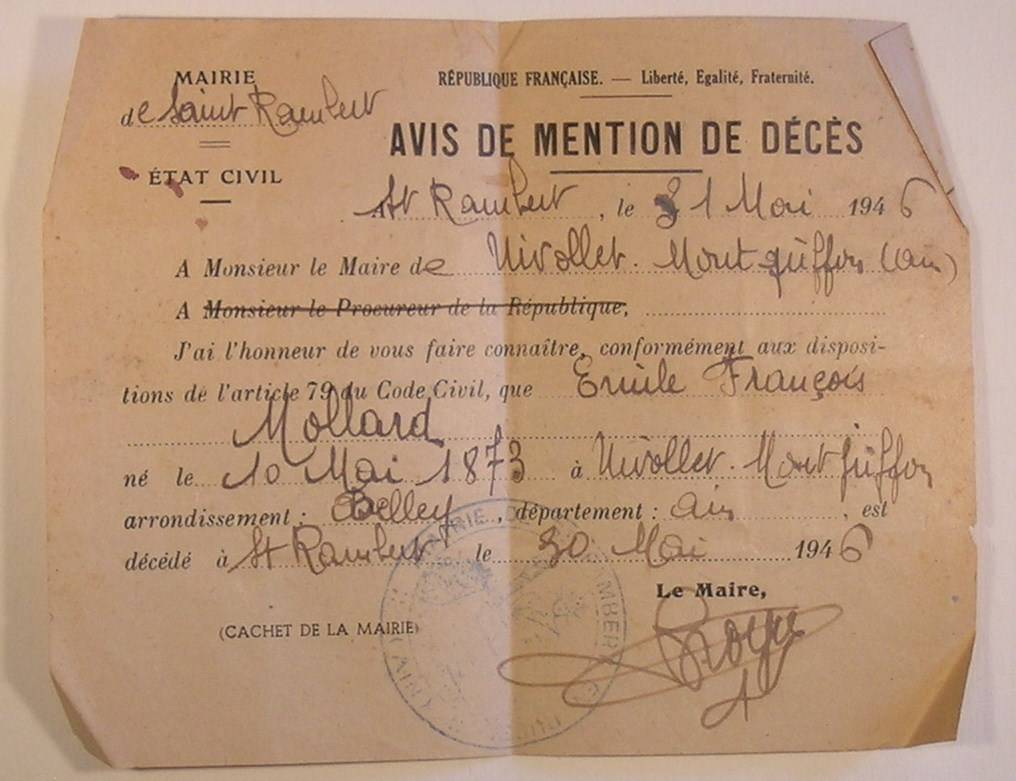 MAIRIE
de Saint Rambert
ÉTAT CIVIL
RÉPUBLIQUE FRANÇAISE. — Liberté, Egalité, Fraternité.
AVIS DE MENTION DE DÉCÈS
A St Rambert, le 31 Mai 1946
A Monsieur le Maire de Nivollet. Montgriffon (ain)
A Monsieur le Procureur de la République,
J'ai l'honneur de vous faire connaître, conformément aux disposi-
tions de l'article 79 du Code Civil, que Emile François
Mollard
né le 10 Mai 1873 à Nivollet. Montgriffon
arrondissement : Belley, département : ain, est
décédé à St Rambert le 30 Mai 1946
Le Maire,
(CACHET DE LA MAIRIE)
MAIRIE DE
(AIN)